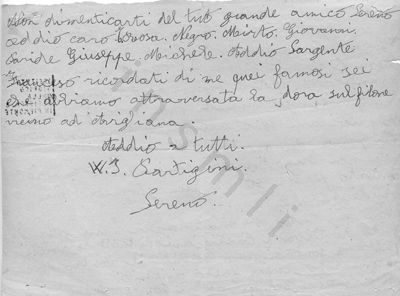 Non dimenticarti del tuo grande amico Sereno
addio caro Negro. Mirto. Giovanni.
Davide Giuseppe. Michele. Addio Sargente
Francesco ricordati di me quei famosi sei
che abbiamo attraversata la dora sul filone
vicino ad Avigliana.
Addio a tutti.
W. I. Partigini.
Sereno.
insmli